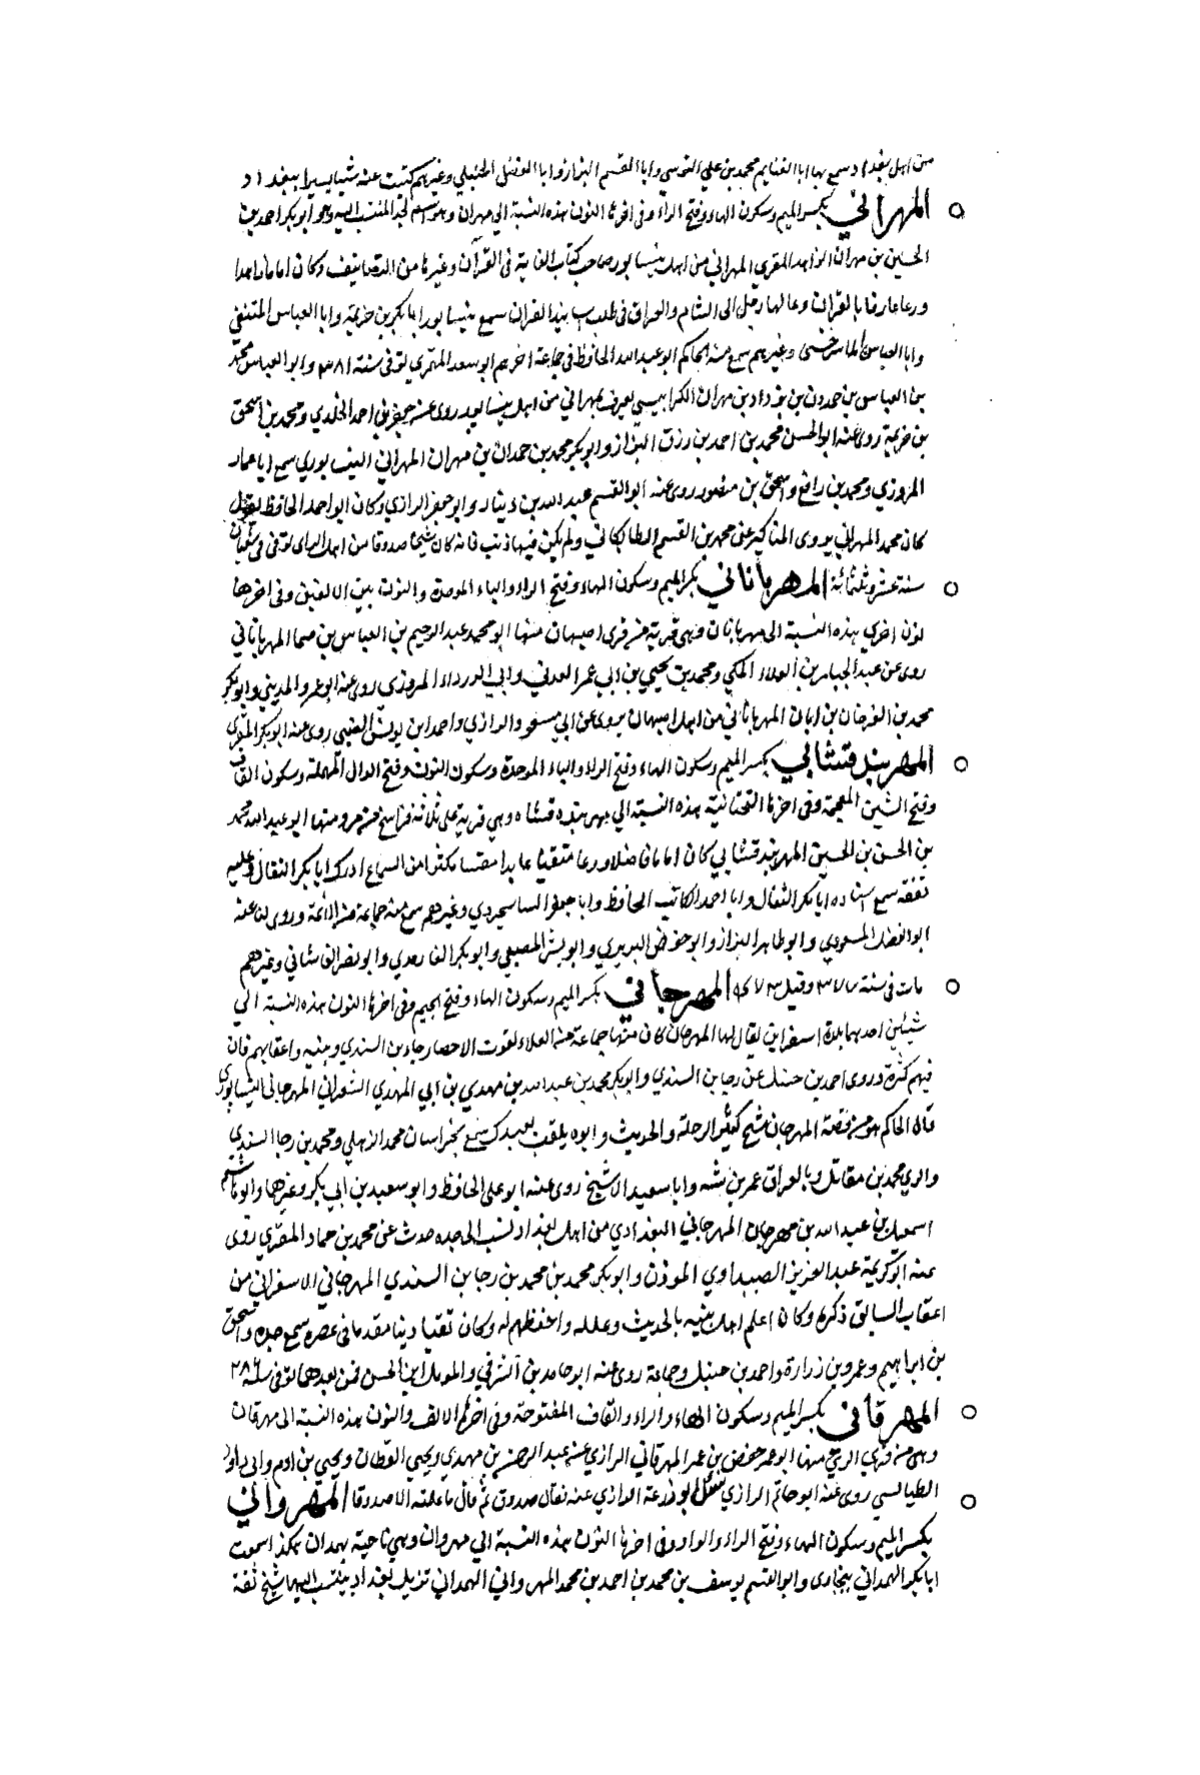 من اهل بغداد سمع بها ابا الغنايم محمد بن علي النرسي وابا القسم البزاز وابا الفضل الحنبلي وغيرهم كتبت عنه شيا يسيرا ببغداد
المهراني بكسر الميم وسكون الهاء وفتح الراء وفي اخرها النون هذه النسبة الى مهران وهو اسم لجد المنتسب اليه وهو ابو بكر احمد بن
الحسين بن مهران الزاهد المقري المهراني من اهل نيسابور صاحب كتاب الغاية في القرآن وغيرها من التصانيف وكان اماما زاهدا
ورعا عارفا بالقران وعالما رحل الى الشام والعراق في طلب القران سمع بنيسابور ابا بكر بن خزيمة وابا العباس الثقفي
وابا العباس الماسرخسي وغيرهم سمع منه الحاكم ابو عبد الله الحافظ في جماعة اخرهم ابو سعد المقري توفي في سنة ٣٨١ وابو العباس محمد
بن العباس بن حمدون بن يزداد بن مهران الكرابيسي يعرف بمهراني من اهل نيسابور روى عنه جعفر بن احمد الخلدي ومحمد بن اسحق
بن خزيمة روى عنه ابو الحسن محمد بن احمد بن رزق البزاز وابو بكر محمد بن حمدان بن مهران المهراني النيسابوري سمع ابا عمار
المروزي ومحمد بن رافع واسحق بن منصور روى عنه ابو القسم عبد الله بن دينار وابو جعفر الرازي وكان ابو احمد الحافظ يقول
كان محمد المهراني يروى المناكير عن محمد بن القسم الطايكاني ولم يكن فيها ذنب فانه كان شيخا صدوقا من اهل الراى توفي في شعبان
سنة عشر وثلثمائة المهرباناني بكسر الميم وسكون الهاء وفتح الراء والباء الموحدة والنون بين الالفين وفي اخرها
نون اخرى هذه النسبة الى مهربانان وهي قرية من قرى اصبهان منها ابو محمد عبد الرحيم بن العباس بن المهرباناني
روى عن عبد الجبار بن العلاء المكي ومحمد بن يحيى بن ابي عمر العدني وابي الورداء المروزي روى عنه ابو عمرو المديني وابو بكر
محمد بن الفرخان بن ابان المهرباناني من اهل اصبهان يروى عن ابي مسعود الرازي واحمد بن يونس الضبي روى عنه ابو بكر المقرى
المهربندقشائي بكسر الميم وسكون الهاء وفتح الراء والباء الموحدة وسكون النون وفتح الدال المهملة وسكون القاف
وفتح الشين المعجمة وفي اخرها التحتانية هذه النسبة الي مهربندقشاه وهي قرية على ثلاثة فراسخ من مرو منها ابو عبد الله محمد
بن الحسن بن الحسين المهربندقشائي كان اماما فاضلا ورعا متقنا عابدا مكثرا من السماع ادرك ابا بكر القفال وعليه
تفقه سمع استاده ابا بكر القفال وابا احمد الكاتب الحافظ وابا جعفر الساسجردي وغيرهم سمع منه جماعة من الائمة وروى لنا عنه
ابو الفضل المسعودي وابو طاهر البزاز وابو حفص وابو بكر الفارمدي وابو نصر الفاشاني وغيرهم
مات في سنة وقيل المهرجاني بكسر الميم وسكون الهاء وفتح الجيم وفي اخرها النون هذه النسبة الي
شيئين احدهما بلدة اسفراين يقال لها المهرجان كان منها جماعة من العلاء يفوت الاحصار رجاء بن السندي وبنيه واعقابهم فان
فيهم كثرة وروى احمد بن حنبل عن رجا بن السندي وابو بكر محمد بن عبد الله بن مهدي بن ابي المهدي الشعراني المهرجاني النيسابوري
قال الحاكم هو من قصبة المهرجان شيخ كثير الرحلة والحديث وابوه يلقب سمع بخراسان محمد الذهلي ومحمد بن رجا السندي
والري محمد بن مقاتل وبالعراق عمر بن شبه وابا سعيد الاشج روى عنه ابو على الحافظ وابو سعيد بن ابي بكر وغيرها وابو قاسم
اسمعيل بن عبد الله بن مهرجان المهرجاني البغدادي من اهل بغداد نسب الى جده حدث عن محمد بن حماد المقري روى
عنه ابو كريمة عبد العزيز الصيداوي المؤذن وابو بكر محمد بن محمد بن رجا بن السندي المهرجاني الاسفراني من
اعقاب السابق ذكره وكان اعلم اهل بيته بالحديث وعلله واحفظهم له وكان تقيا دينا مقدما في عصره سمع جده واسحق
بن ابراهيم وعمرو بن زرارة واحمد بن حنبل وجماعة روى عنه ابو حامد بن الشرقي والمومل ابن الحسن فمن بعدهما توفي سنة ٢٨٦
المهرقاني بكسر الميم وسكون الهاء والراء والقاف المفتوحة وفي اخرها الالف والنون هذه النسبة الى مهرقان
وهي من قري الري منها ابو عمر حفص بن عمر المهرقاني الرازي عن عبد الرحمن بن مهدي ويحيى القطان ويحيى بن ادم وابى داود
الطيالسي روى عنه ابو حاتم الرازي سئل ابو زرعة الرازي عنه فقال صدوق ثم قال ما علمته الا صدوقا المهرواني
بكسر الميم وسكون الهاء وفتح الراء والواو وفي اخرها النون هذه النسبة الي مهروان وهي ناحية بهمدان هكذا سمعت
ابا بكر الهمداني ببخارى وابو القسم يوسف بن محمد بن احمد بن محمد المهرواني الهمداني نزيل بغداد ينتسب اليها شيخ ثقة